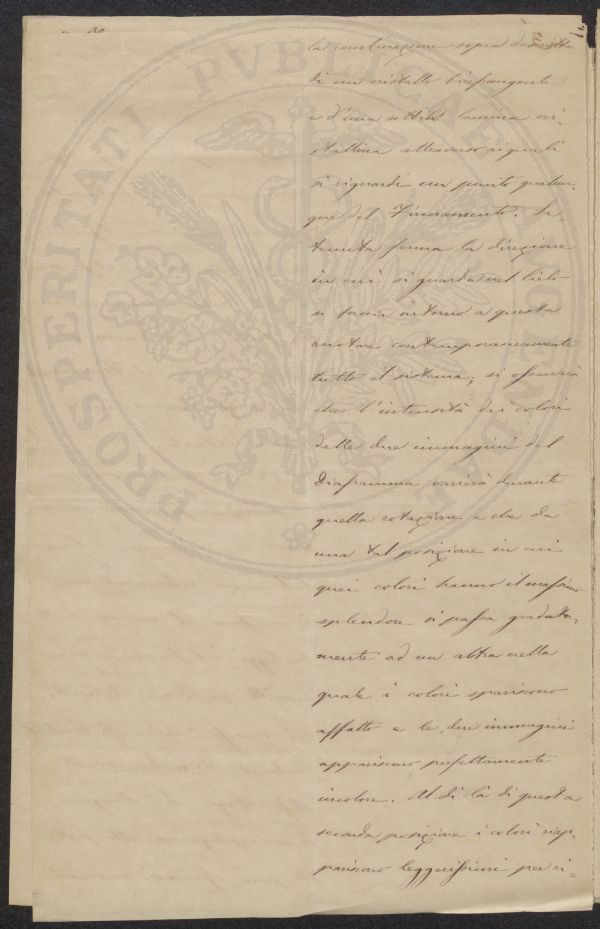 la combinazione sopra descritta
di un cristallo birefrangente
e d'una sottile lamina cri-
stallina attraverso ai quali
si riguardi un punto qualun-
que del Firmamento. Se,
tenuta ferma la direzione
in cui si guarda nel Cielo
si faccia intorno a questa
ruotare contemporaneamente
tutto il sistema, si osserverà
che l'intensità dei colori
delle due immagini del
Diaframma varierà durante
quella rotazione e che da
una tal posizione in cui
quei colori hanno il massimo
splendore si passa gradata-
mente ad un altra nella
quale i colori spariscono
affatto e le due immagini
appariscono perfettamente
incolore. Al di là di questa
seconda posizione i colori riap-
pariscono leggerissimi per ri-
PROSPERITATI PVBLICAE AVGENDAE